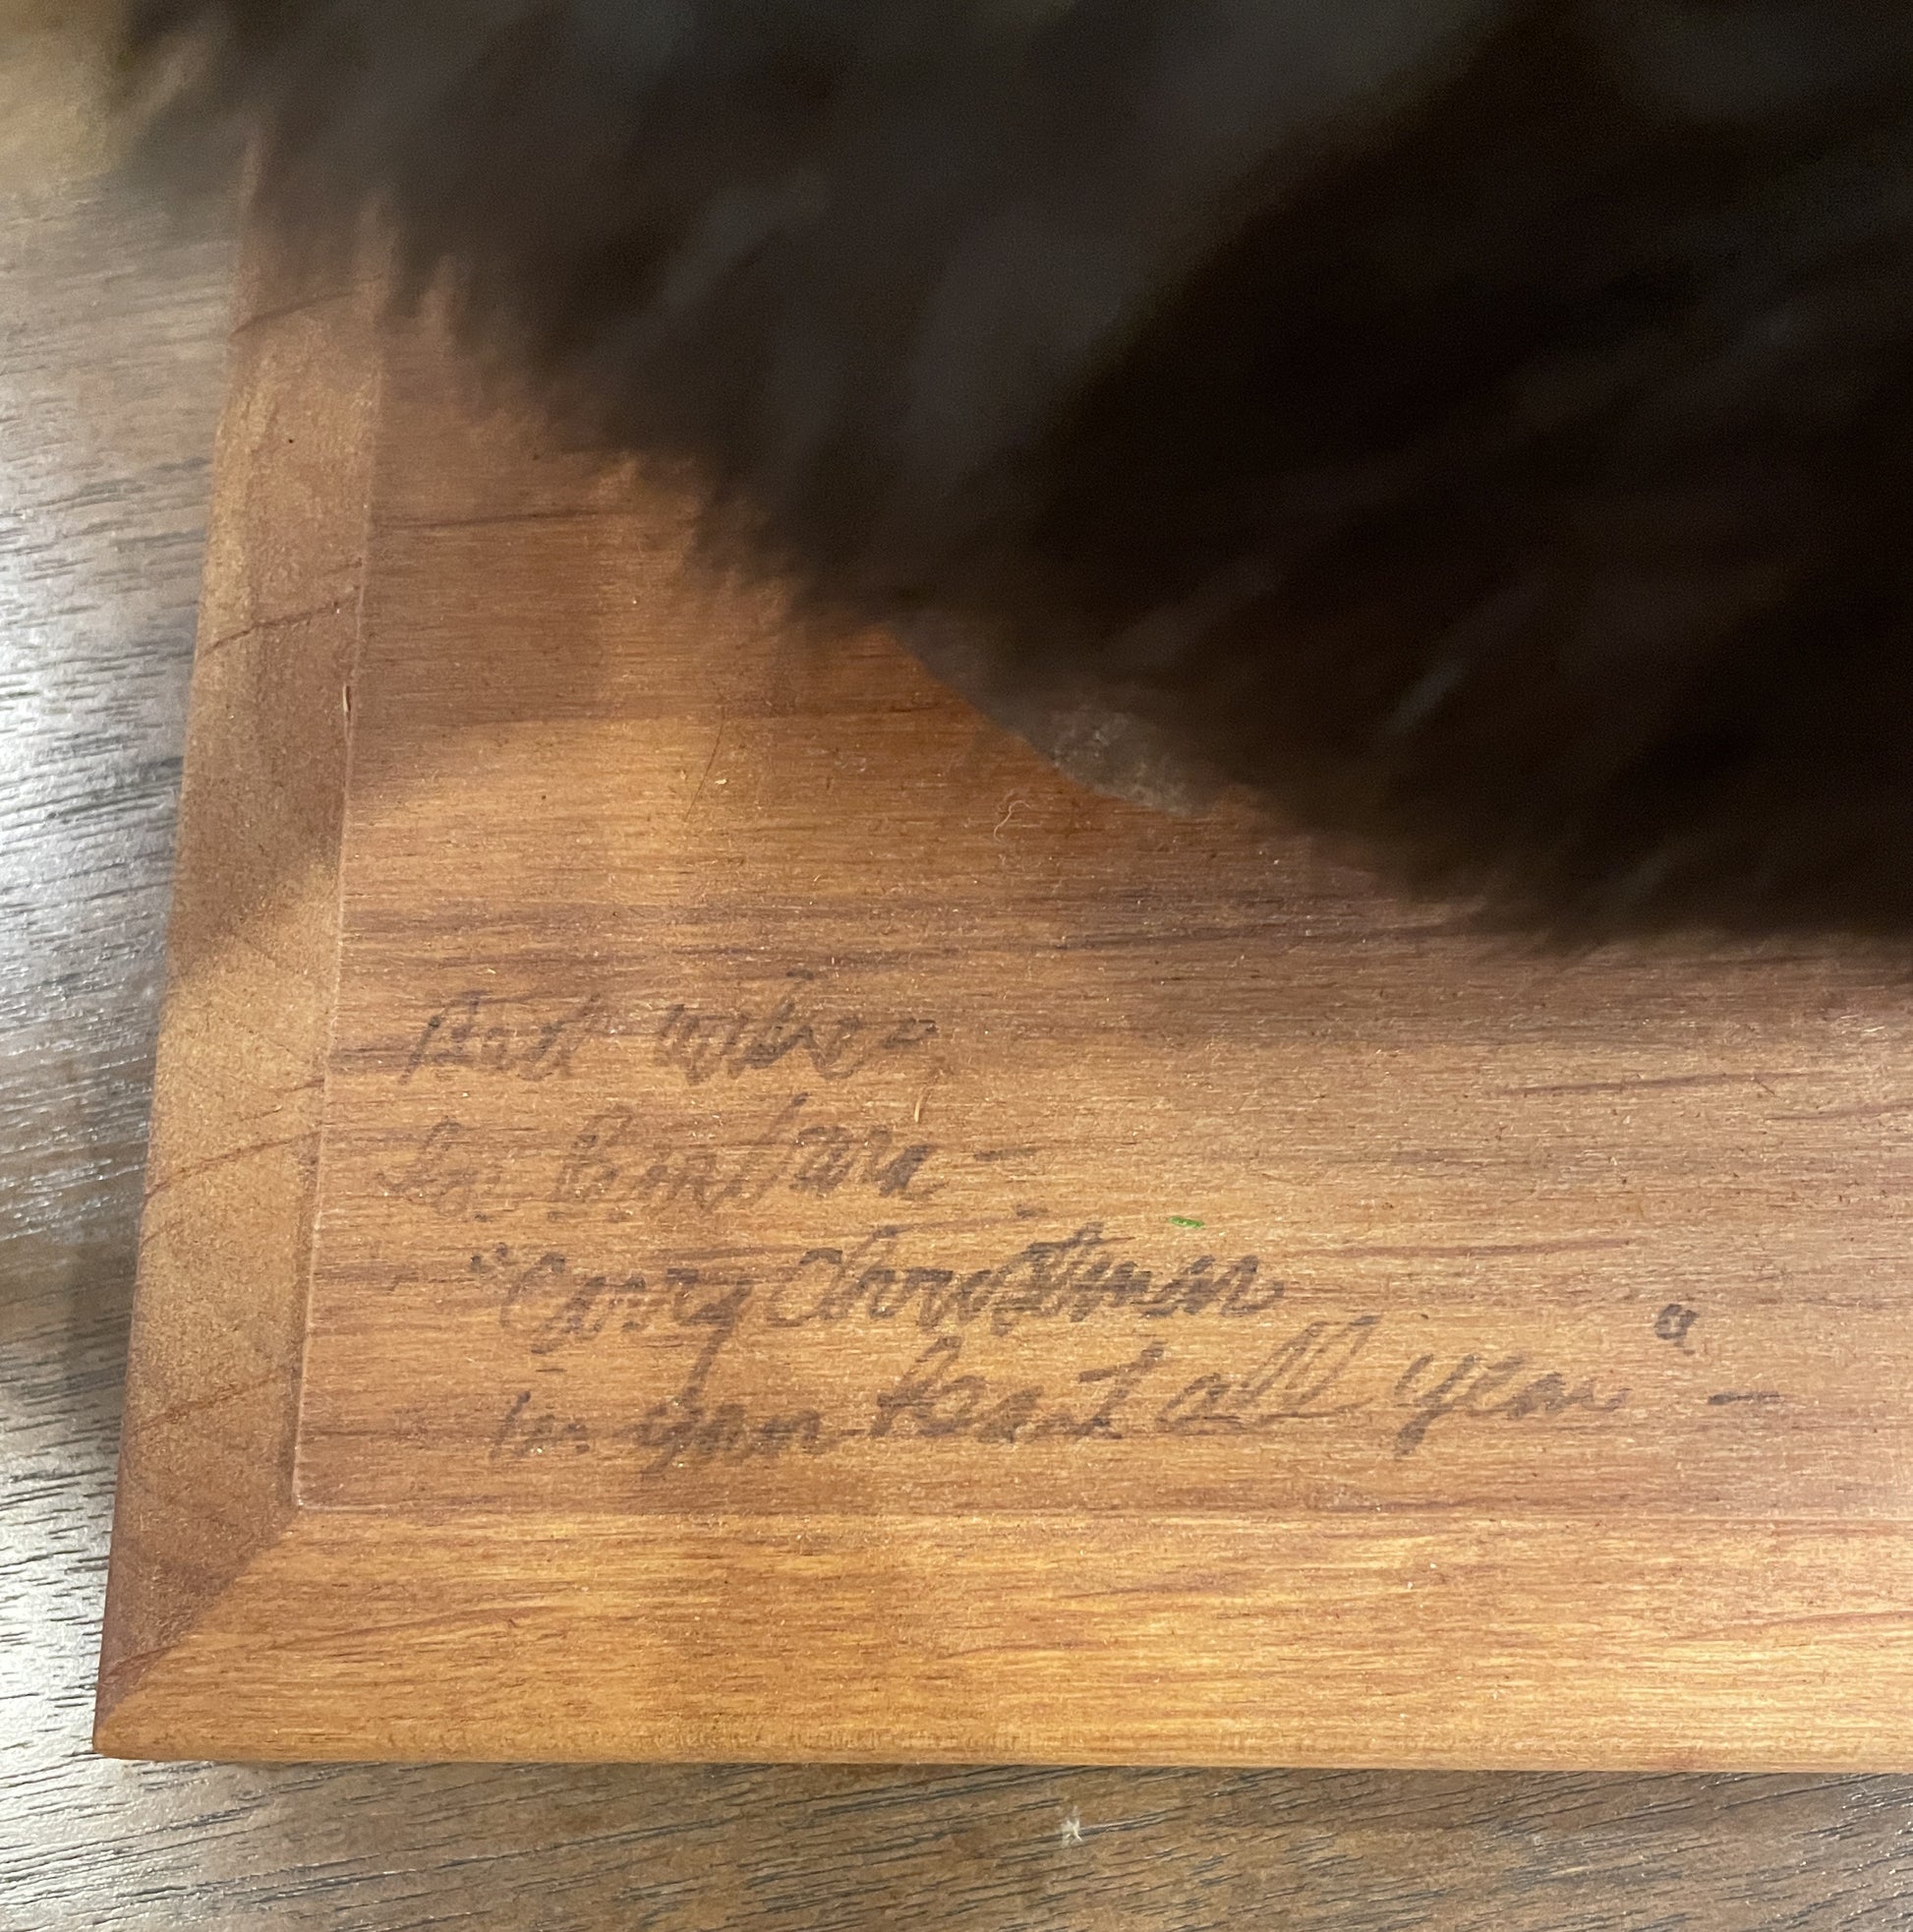 Best wishes
to Barbara -
"Carry Christmas
in your heart all year" -